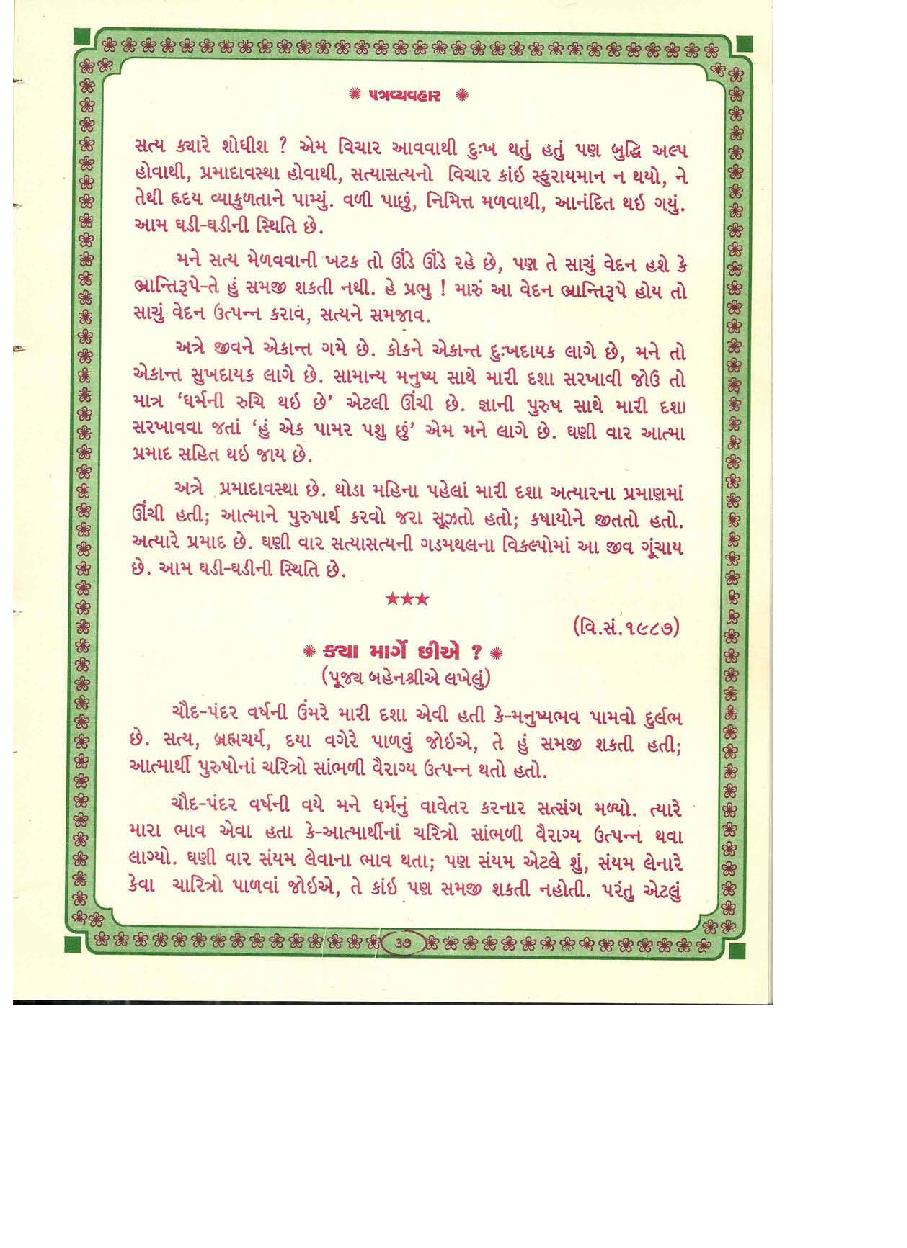 ❋ પત્રવ્યવહાર ❋
સત્ય ક્યારે શોધીશ ? એમ વિચાર આવવાથી દુઃખ થતું હતું પણ બુદ્ધિ અલ્પ
હોવાથી, પ્રમાદાવસ્થા હોવાથી, સત્યાસત્યનો વિચાર કાંઇ સ્ફુરાયમાન ન થયો, ને
તેથી હૃદય વ્યાકુળતાને પામ્યું. વળી પાછું, નિમિત્ત મળવાથી, આનંદિત થઇ ગયું.
આમ ઘડી-ઘડીની સ્થિતિ છે.
મને સત્ય મેળવવાની ખટક તો ઊંડે ઊંડે રહે છે, પણ તે સાચું વેદન હશે કે
ભ્રાન્તિરૂપે-તે હું સમજી શકતી નથી. હે પ્રભુ ! મારું આ વેદન ભ્રાન્તિરૂપે હોય તો
સાચું વેદન ઉત્પન્ન કરાવ, સત્યને સમજાવ.
અત્રે જીવને એકાન્ત ગમે છે. કોકને એકાન્ત દુઃખદાયક લાગે છે, મને તો
એકાન્ત સુખદાયક લાગે છે. સામાન્ય મનુષ્ય સાથે મારી દશા સરખાવી જોઉં તો
માત્ર ‘ધર્મની રુચિ થઇ છે’ એટલી ઊંચી છે. જ્ઞાની પુરુષ સાથે મારી દશા
સરખાવવા જતાં ‘હું એક પામર પશુ છું’ એમ મને લાગે છે. ઘણી વાર આત્મા
પ્રમાદ સહિત થઇ જાય છે.
અત્રે પ્રમાદાવસ્થા છે. થોડા મહિના પહેલાં મારી દશા અત્યારના પ્રમાણમાં
ઊંચી હતી; આત્માને પુરુષાર્થ કરવો જરા સૂઝતો હતો; કષાયોને જીતતો હતો.
અત્યારે પ્રમાદ છે. ઘણી વાર સત્યાસત્યની ગડમથલના વિકલ્પોમાં આ જીવ ગૂંચાય
છે. આમ ઘડી-ઘડીની સ્થિતિ છે.
★★★
(વિ.સં.૧૯૮૭)
❋ ક્યા માર્ગે છીએ ? ❋
(પૂજ્ય બહેનશ્રીએ લખેલું)
ચૌદ-પંદર વર્ષની ઉંમરે મારી દશા એવી હતી કે-મનુષ્યભવ પામવો દુર્લભ
છે. સત્ય, બ્રહ્મચર્ય, દયા વગેરે પાળવું જોઇએ, તે હું સમજી શકતી હતી;
આત્માર્થી પુરુષોનાં ચરિત્રો સાંભળી વૈરાગ્ય ઉત્પન્ન થતો હતો.
ચૌદ-પંદર વર્ષની વયે મને ધર્મનું વાવેતર કરનાર સત્સંગ મળ્યો. ત્યારે
મારા ભાવ એવા હતા કે-આત્માર્થીનાં ચરિત્રો સાંભળી વૈરાગ્ય ઉત્પન્ન થવા
લાગ્યો. ઘણી વાર સંયમ લેવાના ભાવ થતા; પણ સંયમ એટલે શું, સંયમ લેનારે
કેવા ચારિત્રો પાળવાં જોઇએ, તે કાંઇ પણ સમજી શકતી નહોતી. પરંતુ એટલું
૩૭